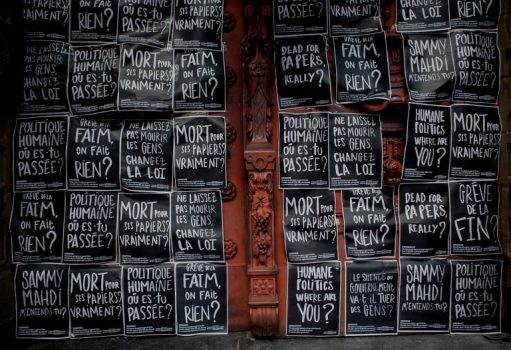 ON FAIT
RIEN?
HUMAINE
OÙ ES-TU
PASSÉE?
SES PAPIERS?
VRAIMENT?
OÙ ES-TU
PASSÉE?
SES PAPIERS?
VRAIMENT?
CHANGEZ
LA LOI
SES PAPIERS,
VRAIMENT?
NE LAISSEZ
PAS MOURIR
LES GENS,
CHANGEZ
LA LOI
POLITIQUE
HUMAINE
OÙ ES-TU
PASSÉE?
MORT POUR
SES PAPIERS?
VRAIMENT?
GRÈVE DE LA
FAIM,
ON FAIT
RIEN?
DEAD FOR
PAPERS,
REALLY?
GRÈVE DE LA
FAIM,
ON FAIT
RIEN?
SAMMY
MAHDI
M'ENTENDS TU?
POLITIQUE
HUMAINE
OÙ ES-TU
PASSÉE?
POLITIQUE
HUMAINE
OÙ ES-TU
PASSÉE?
GRÈVE DE LA
FAIM,
ON FAIT
RIEN?
NE LAISSEZ
PAS MOURIR
LES GENS,
CHANGEZ
LA LOI
MORT POUR
SES PAPIERS?
VRAIMENT?
POLITIQUE
HUMAINE
OÙ ES-TU
PASSÉE?
NE LAISSEZ
PAS MOURIR
LES GENS,
CHANGEZ
LA LOI
HUMANE
POLITICS
WHERE ARE
YOU?
MORT POUR
SES PAPIERS?
VRAIMENT?
GRÈVE DE LA
FAIM,
ON FAIT
RIEN?
POLITIQUE
HUMAINE
OÙ ES-TU
PASSÉE?
MORT POUR
SES PAPIERS?
VRAIMENT?
NE LAISSEZ
PAS MOURIR
LES GENS,
CHANGEZ
LA LOI
MORT POUR
SES PAPIERS?
VRAIMENT?
GRÈVE DE LA
FAIM,
ON FAIT
RIEN?
DEAD FOR
PAPERS,
REALLY?
GRÈVE
DE LA
FIN?
SAMMY
MAHDI
M'ENTENDS TU?
MORT POUR
SES PAPIERS?
VRAIMENT?
POLITIQUE
HUMAINE
OÙ ES-TU
PASSÉE?
GRÈVE DE LA
FAIM,
ON FAIT
RIEN?
HUMANE
POLITICS
WHERE ARE
YOU?
LE SILENCE DU
GOUVERNEMENT
VA-T-IL TUER
DES GENS?
SAMMY
MAHDI
M'ENTENDS TU?
POLITIQUE
HUMAINE
OÙ ES-TU
PASSÉE?